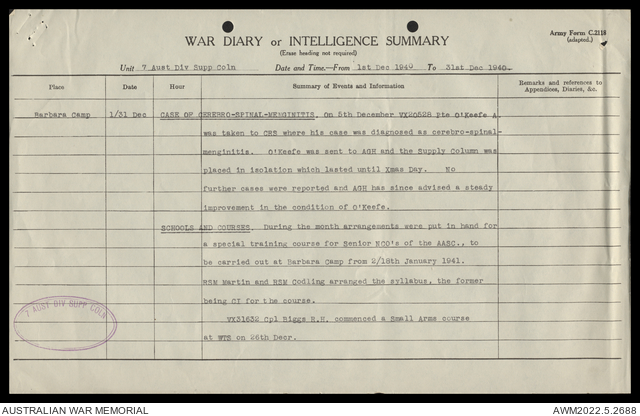 Army Form C.2118
(adapted.)
WAR DIARY or INTELLIGENCE SUMMARY
(Erase heading not required)
Unit 7 Aust Div Supp Coln Date and Time.—From 1st Dec 1940 To 31st Dec 1940.
Place Date Hour Summary of Events and Information Remarks and references to Appendices, Diaries, &c.
Barbara Camp 1/31 Dec CASE OF CEREBRO-SPINAL-MENGINITIS. On 5th December VX20528 Pte O'Keefe A
was taken to CRS where his case was diagnosed as cerebro-spinal-
menginitis. O'Keefe was sent to AGH and the Supply Column was
placed in isolation which lasted until Xmas Day. No
further cases were reported and AGH has since advised a steady
improvement in the condition of O'Keefe.
SCHOOLS AND COURSES. During the month arrangements were put in hand for
a special training course for Senior NCO's of the AASC., to
be carried out at Barbara Camp from 2/18th January 1941.
RSM Martin and RSM Codling arranged the syllabus, the former
being CI for the course.
VX31632 Cpl Biggs R.H. commenced a Small Arms course
at WTS on 26th Decr.
7 AUST DIV SUPP COLN
AUSTRALIAN WAR MEMORIAL AWM2022.5.2688